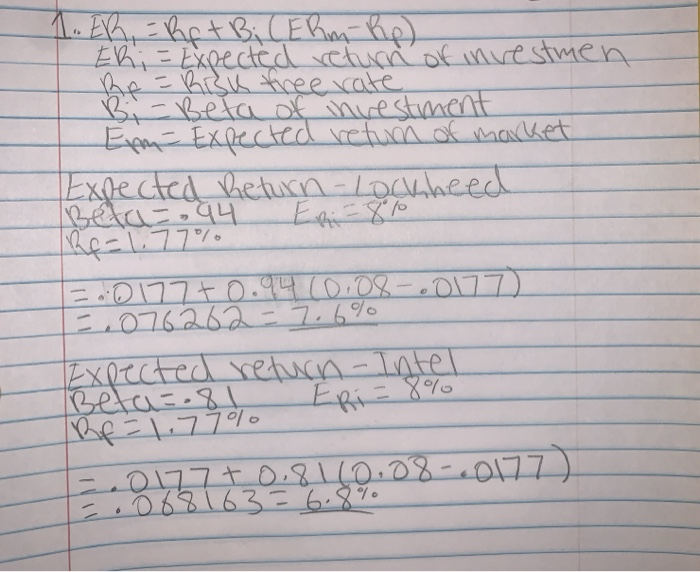 1. ERi = Rf + Bi (ERm - Rf)
ERi = Expected return of investmen
Rf = Risk free rate
Bi = Beta of investment
Erm = Expected return of market
Expected Return - Lockheed
Beta = .94 ERi = 8%
Rf = 1.77%
= .0177 + 0.94 (0.08 - .0177)
= .076262 = 7.6%
Expected return - Intel
Beta = .81 ERi = 8%
Rf = 1.77%
= .0177 + 0.81 (0.08 - .0177)
= .068163 = 6.8%